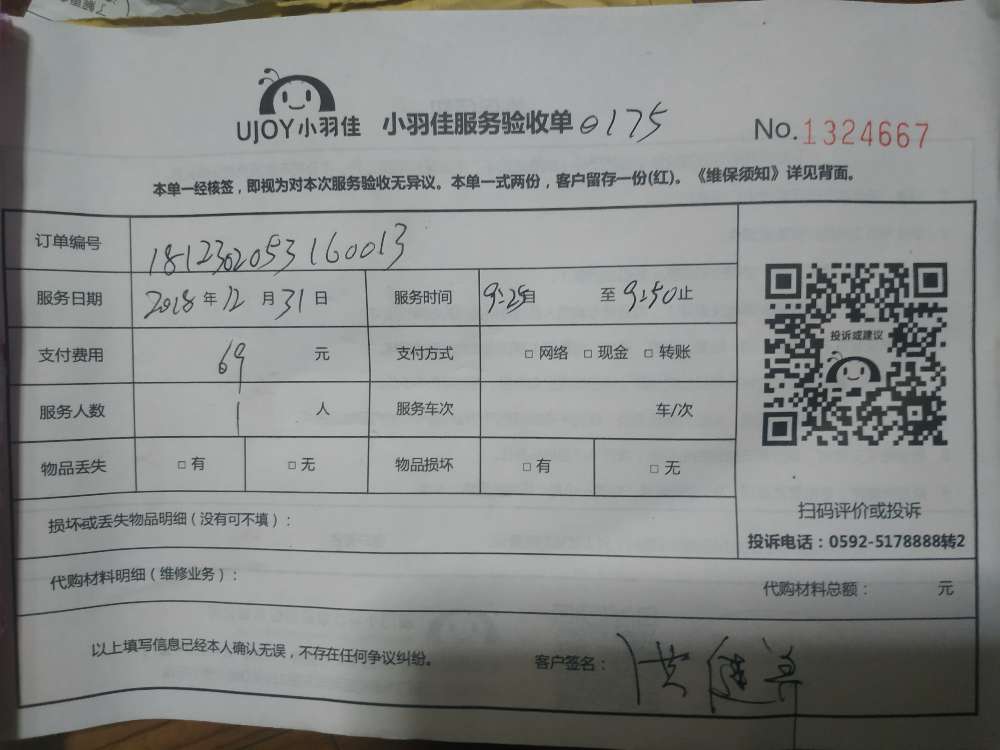 UJOY小羽佳 小羽佳服务验收单 0175 No.1324667
本单一经核签，即视为对本次服务验收无异议。本单一式两份，客户留存一份(红)。《维保须知》详见背面。
订单编号 181230205316 0013
服务日期 2018 年 12 月 31 日 服务时间 9:25自 至 9:50止
投诉或建议
支付费用 69 元 支付方式 □ 网络 □ 现金 □ 转账
服务人数 1 人 服务车次 车/次
物品丢失 □ 有 □ 无 物品损坏 □ 有 □ 无
扫码评价或投诉
损坏或丢失物品明细（没有可不填）：
投诉电话：0592-5178888转2
代购材料明细（维修业务）：
代购材料总额： 元
以上填写信息已经本人确认无误，不存在任何争议纠纷。 客户签名： 洪